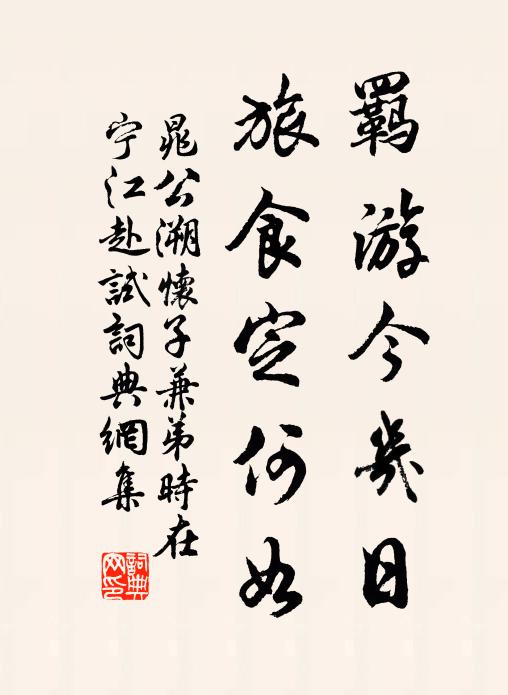 羈游今幾日
旅食定何如
晁公溯懷子兼弟時在
宁江赴試詞典網集
詞典
网印